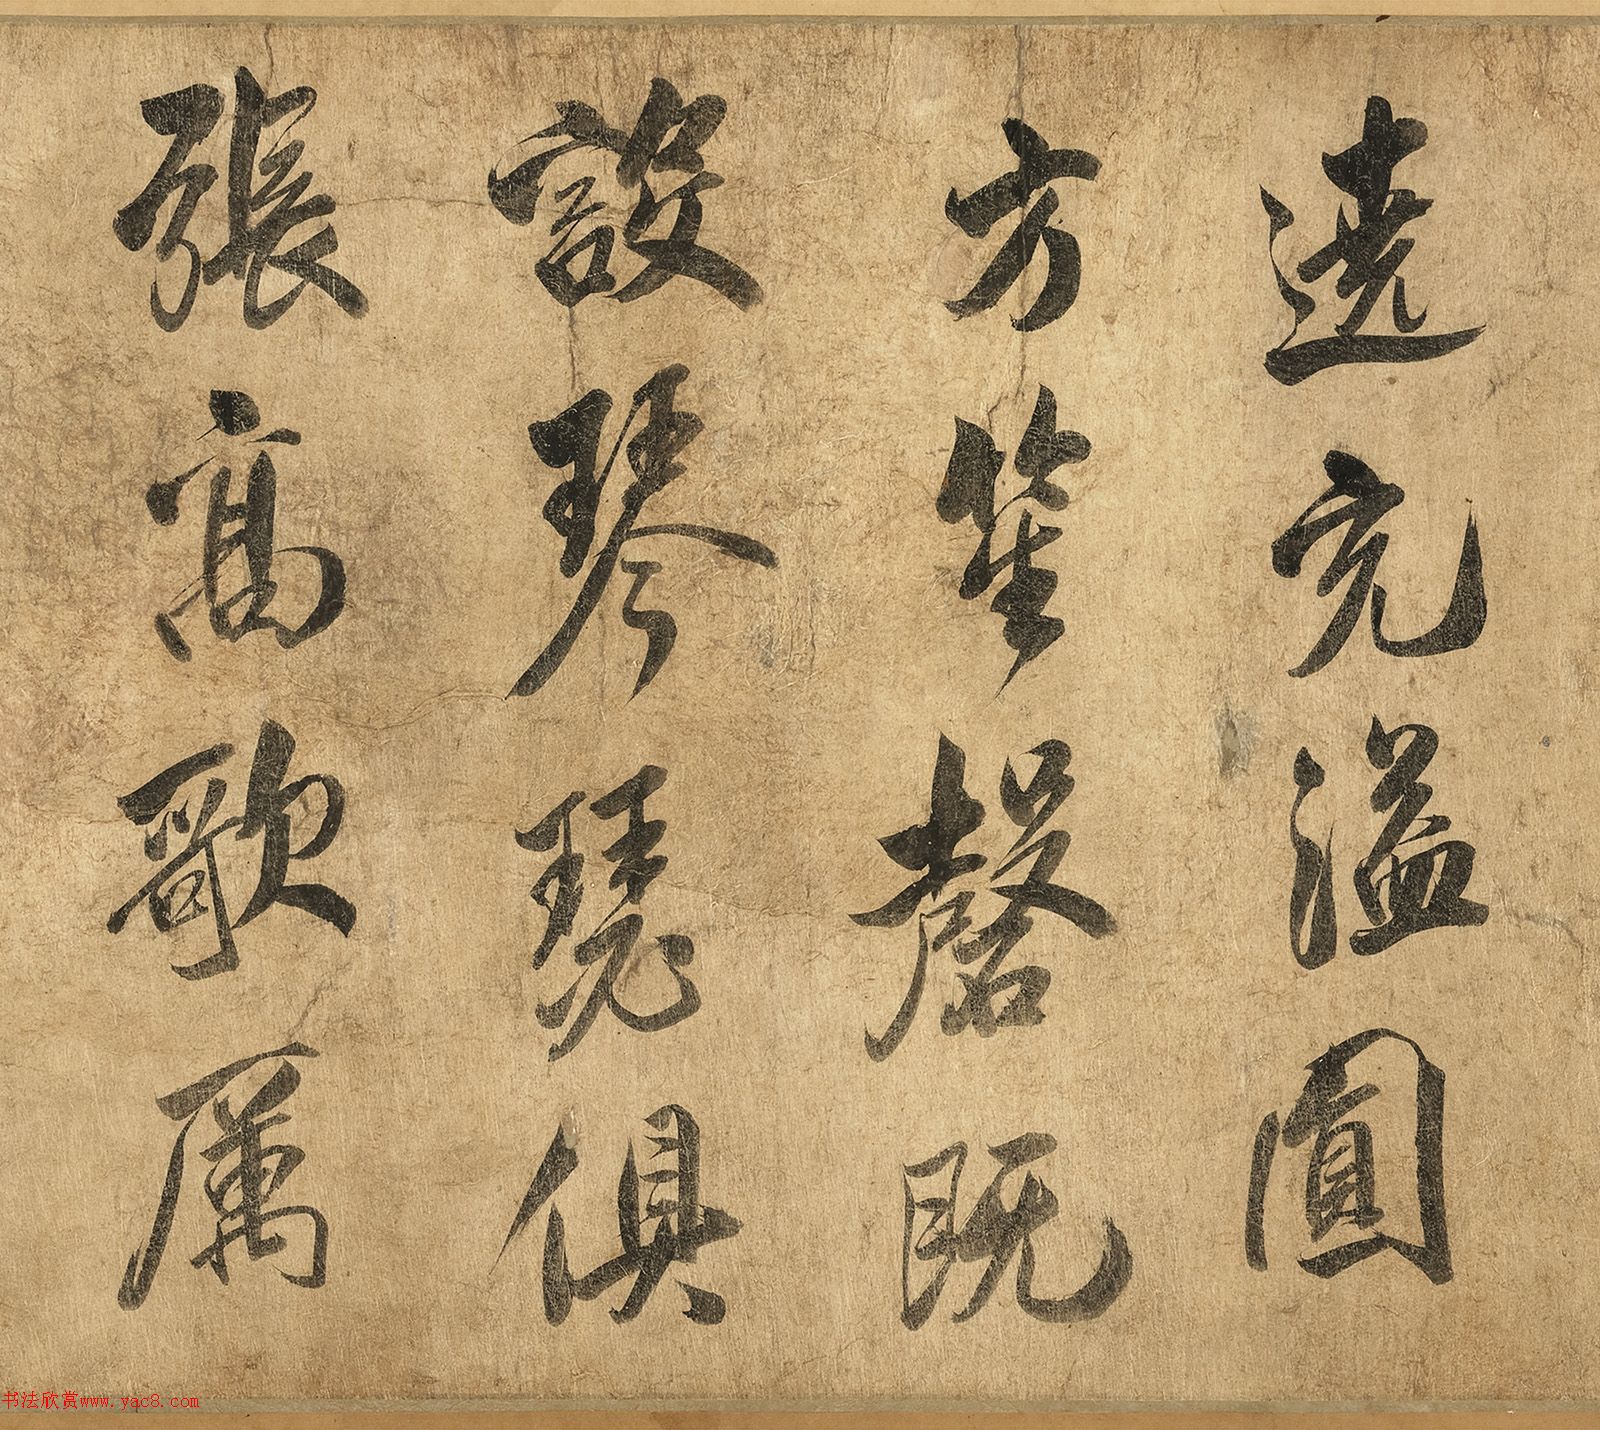 遶充溢圓
方笙磬既
設琴瑟俱
張高歌厲
书法欣赏www.yac8.com